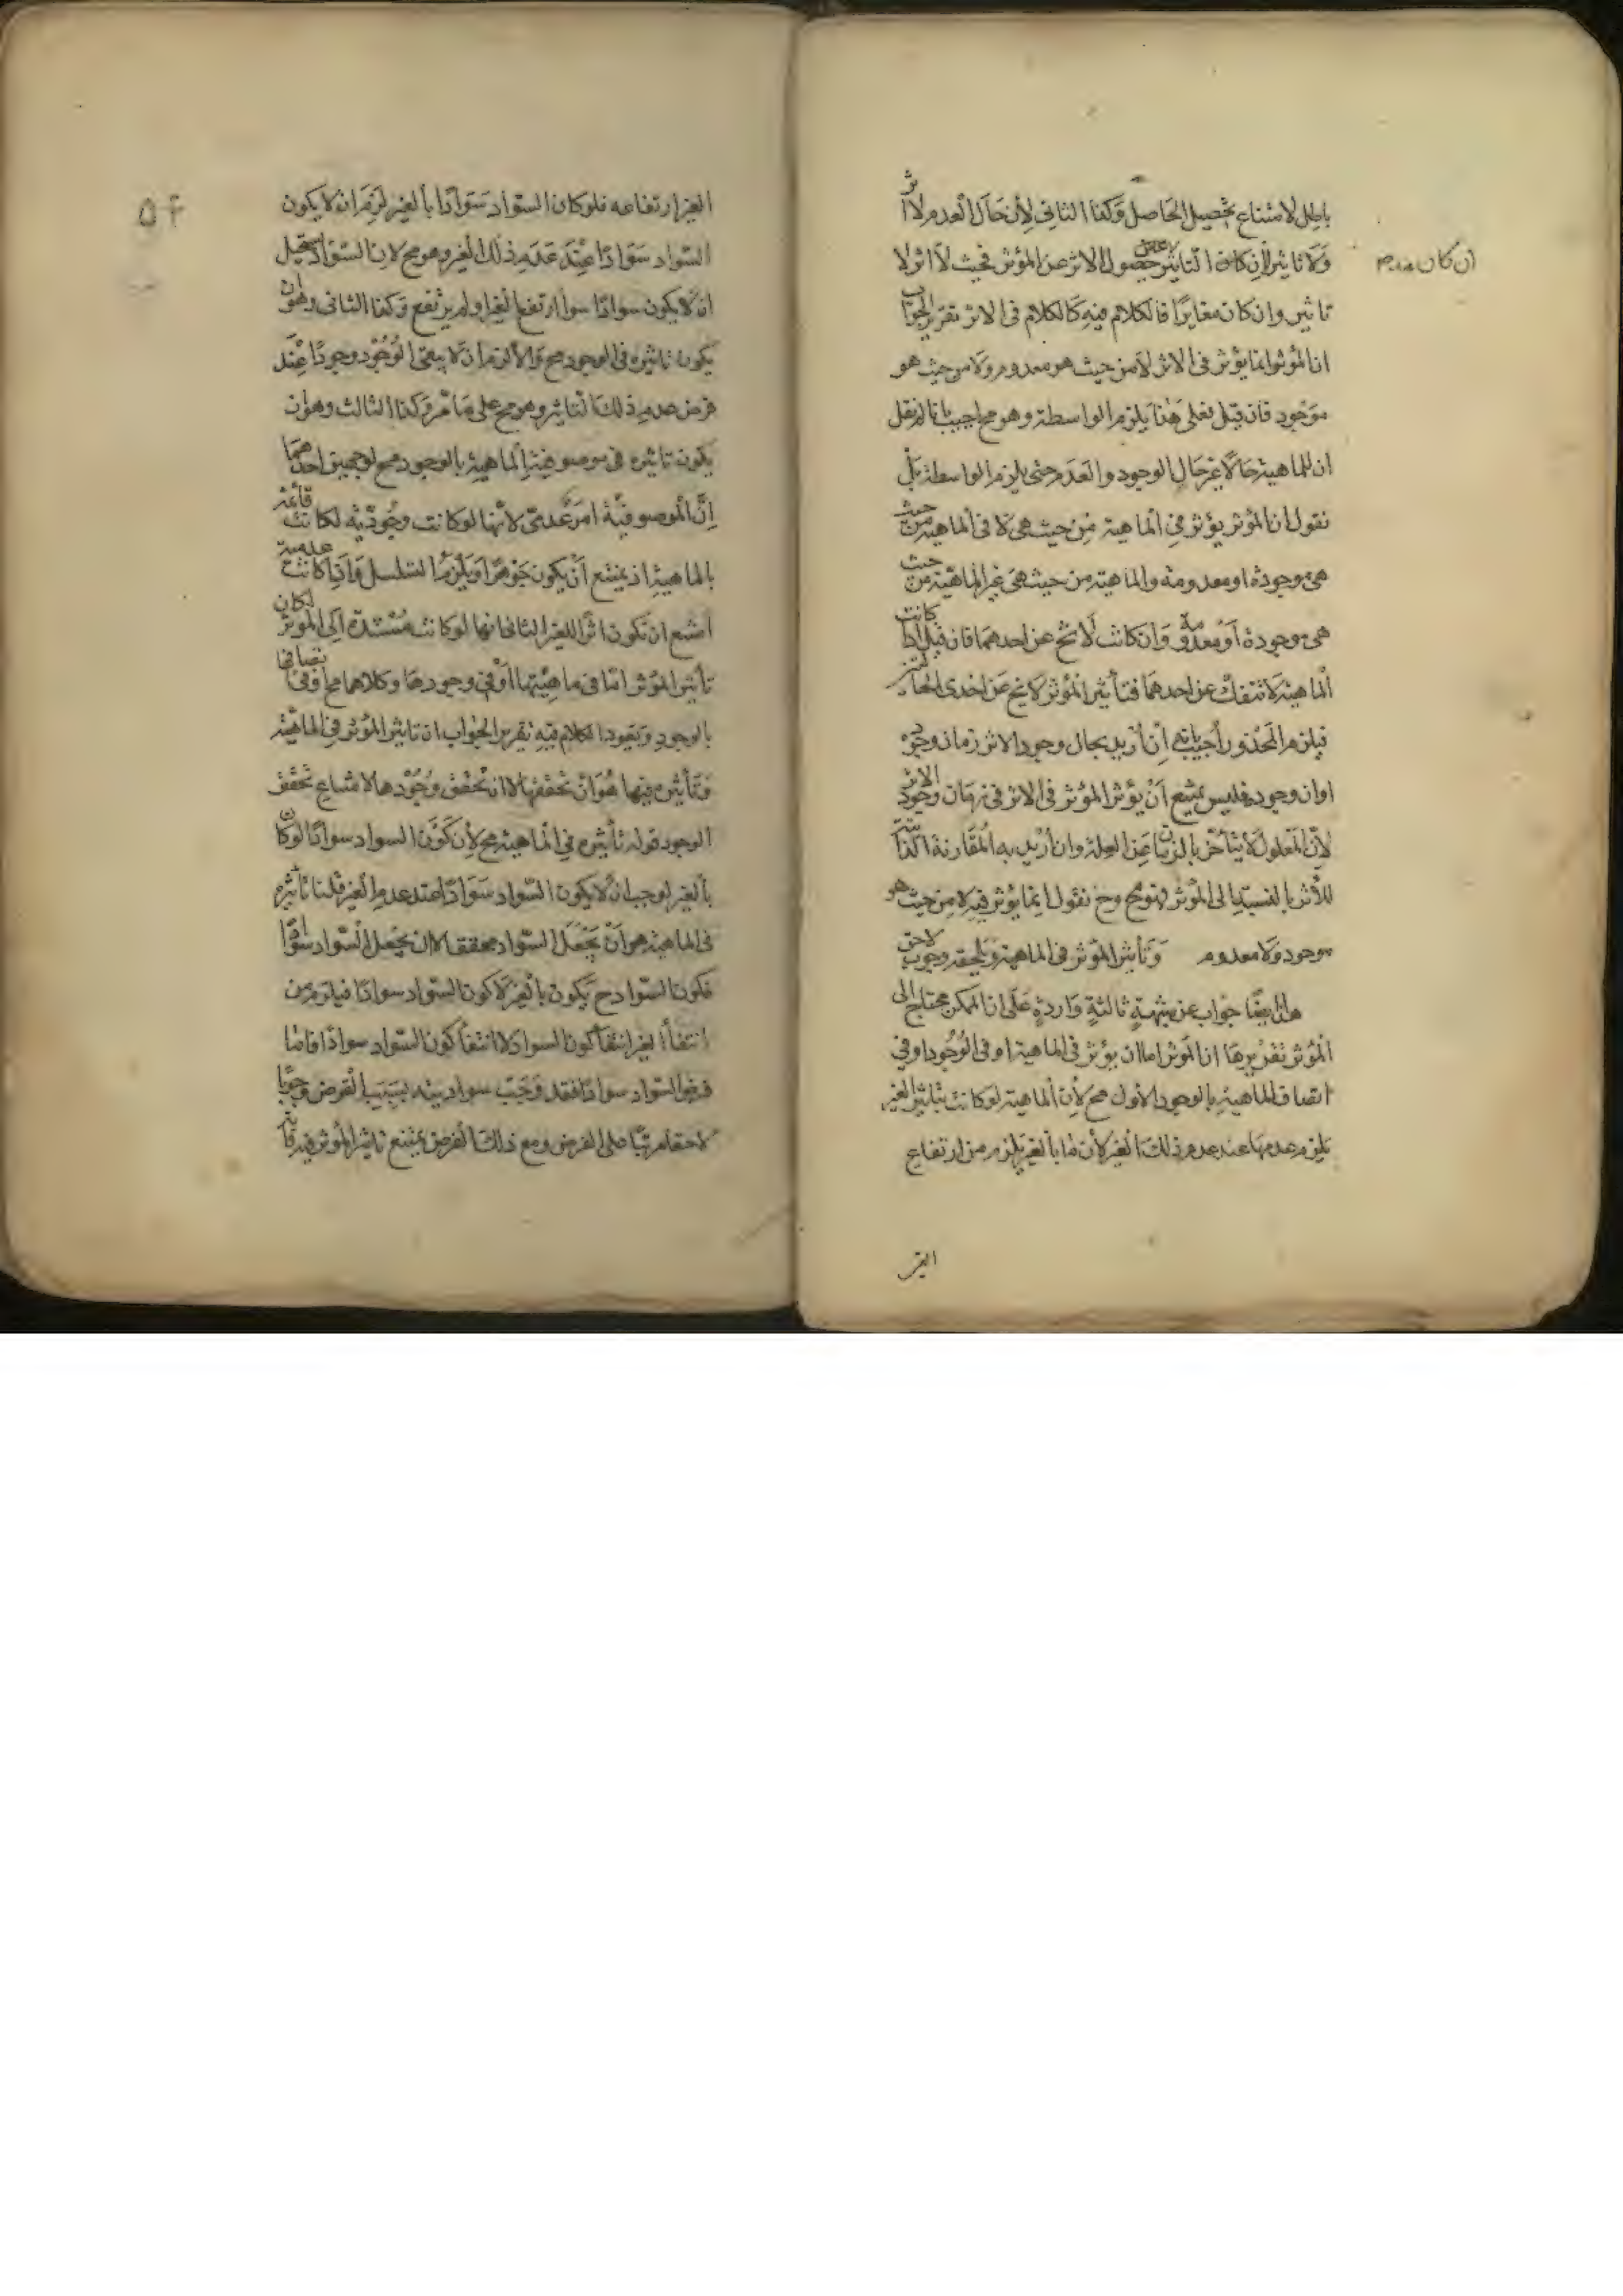 باطل لامتناع تحصيل الحاصل وكذا الثاني لأن حال العدم لا اثر
ولا تاثير لان كان التاثير عين حصول الاثر عن المؤثر فحيث لا اثر لا
ان كان
تاثير وان كان مغايرا فالكلام فيه كالكلام فى الاثر تقرير الجواب
ان المؤثر انما يؤثر فى الاثر لا من حيث هو معدوم ولا من حيث هو
موجود فان قيل فعلى هذا يلزم الواسطة وهو مح اجيب بانا لم نقل
ان للماهية حالا غير حال الوجود والعدم حتى يلزم الواسطة بل
نقول ان المؤثر يؤثر في الماهية من حيث هي لا فى الماهية من حيث
هى موجودة او معدومة والماهية من حيث هى غير الماهية من حيث
هى موجودة او معدومة وان كانت لا تخ عن احدهما فان قيل اذا كانت
الماهية لا تنفك عن احدهما فتأثير المؤثر لا يخ عن احدى الحالتين
فيلزم المحذور أجيب بانه ان أريد بحال وجود الاثر زمان وجوده
اوان وجوده فليس يمتنع أن يؤثر المؤثر فى الاثر فى زمان وجود الاثر
لان المعلول لا يتأخر بالزمان عن العلة وان أريد به المقارنة الذاتية
للأثر بالنسبة الى المؤثر فهو مح وح نقول انما يؤثر فيه لا من حيث هو
موجود ولا معدوم وتأثير المؤثر فى الماهية ويلحقه وجوب لاحق
هذا ايضا جواب عن شبهة ثالثة واردة على ان الممكن محتاج الى
المؤثر تقريرها ان المؤثر اما ان يؤثر فى الماهية او فى الوجود او فى
اتصاف الماهية بالوجود الأول مح لأن الماهية لو كانت بتاثير الغير
يلزم عدمها عند عدم ذلك الغير لأن ما بالغير يلزم من ارتفاع
الغير
الغير ارتفاعه فلو كان السواد سوادا بالغير لزم ان لا يكون
السواد سوادا عند عدم ذلك الغير وهو مح لان السواد يستحيل
ان لا يكون سوادا سوا ارتفع الغير او لم يرتفع وكذا الثانى وهو ان
يكون تاثيره فى الوجود مح والا لزم ان لا يبقى الوجود وجودا عند
فرض عدم ذلك التاثير وهو مح على ما مر وكذا الثالث وهو ان
يكون تاثيره فى موصوفية الماهية بالوجود مح لوجهين احدهما
ان الموصوفية امر عدمى لانها لو كانت وجودية لكانت قائمة
بالماهية اذ يمتنع أن يكون جوهرا ويلزم التسلسل واذا كانت عدمية
امتنع ان تكون اثرا للغير الثاني انها لو كانت مستندة الى المؤثر لكان
تأثير المؤثر اما فى ماهيتها او فى وجودها وكلاهما مح او فى اتصافها
بالوجود ويعود الكلام فيه تقرير الجواب ان تاثير المؤثر فى الماهية
وتأثيره فيها هو ان تحققها لا ان تحقق وجودها لامتناع تحقق
الوجود قوله تأثيره في الماهية مح لأن كون السواد سوادا لو كان
بالغير لوجب ان لا يكون السواد سوادا عند عدم الغير قلنا تأثيره
فى الماهية هو ان يجعل السواد محققا لا ان يجعل السواد سوادا
فكون السواد ح يكون بالغير لا كون السواد سوادا فيلزم من
انتفأ الغير انتفأ كون السواد لا انتفأ كون السواد سوادا فاما
فرض السواد سوادا فقد وجب سواديته بسبب الفرض وجوبا
لاحقا مرتبا على الفرض ومع ذلك الفرض يمتنع تاثير المؤثر فيه فانه
٥٤